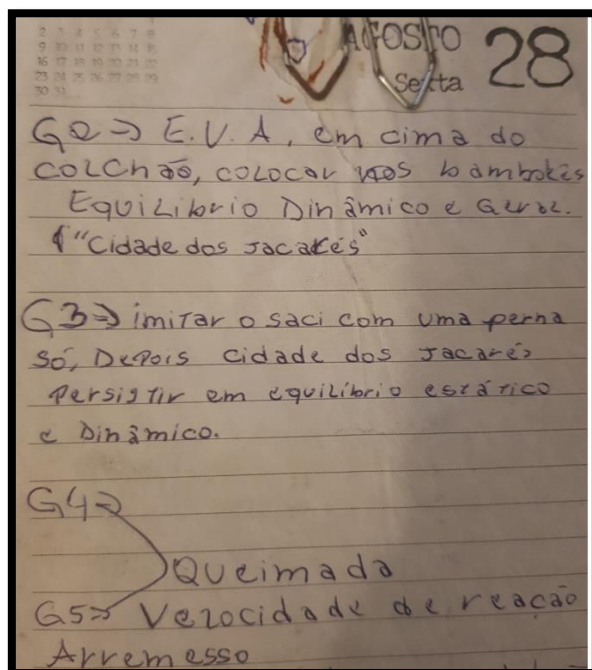 2 3 4 5 6 7 8
9 10 11 12 13 14 15
16 17 18 19 20 21 22
23 24 25 26 27 28 29
30 31
AGOSTO
28
Sexta
G2 => E.V.A, em cima do
colchão, colocar bambolês
Equilibrio Dinâmico e Geral.
"Cidade dos Jacarés"
G3 => imitar o saci com uma perna
só, Depois cidade dos Jacarés
Persistir em equilíbrio estático
e Dinâmico.
G4 =>
Queimada
G5 => Velocidade de reação
Arremesso